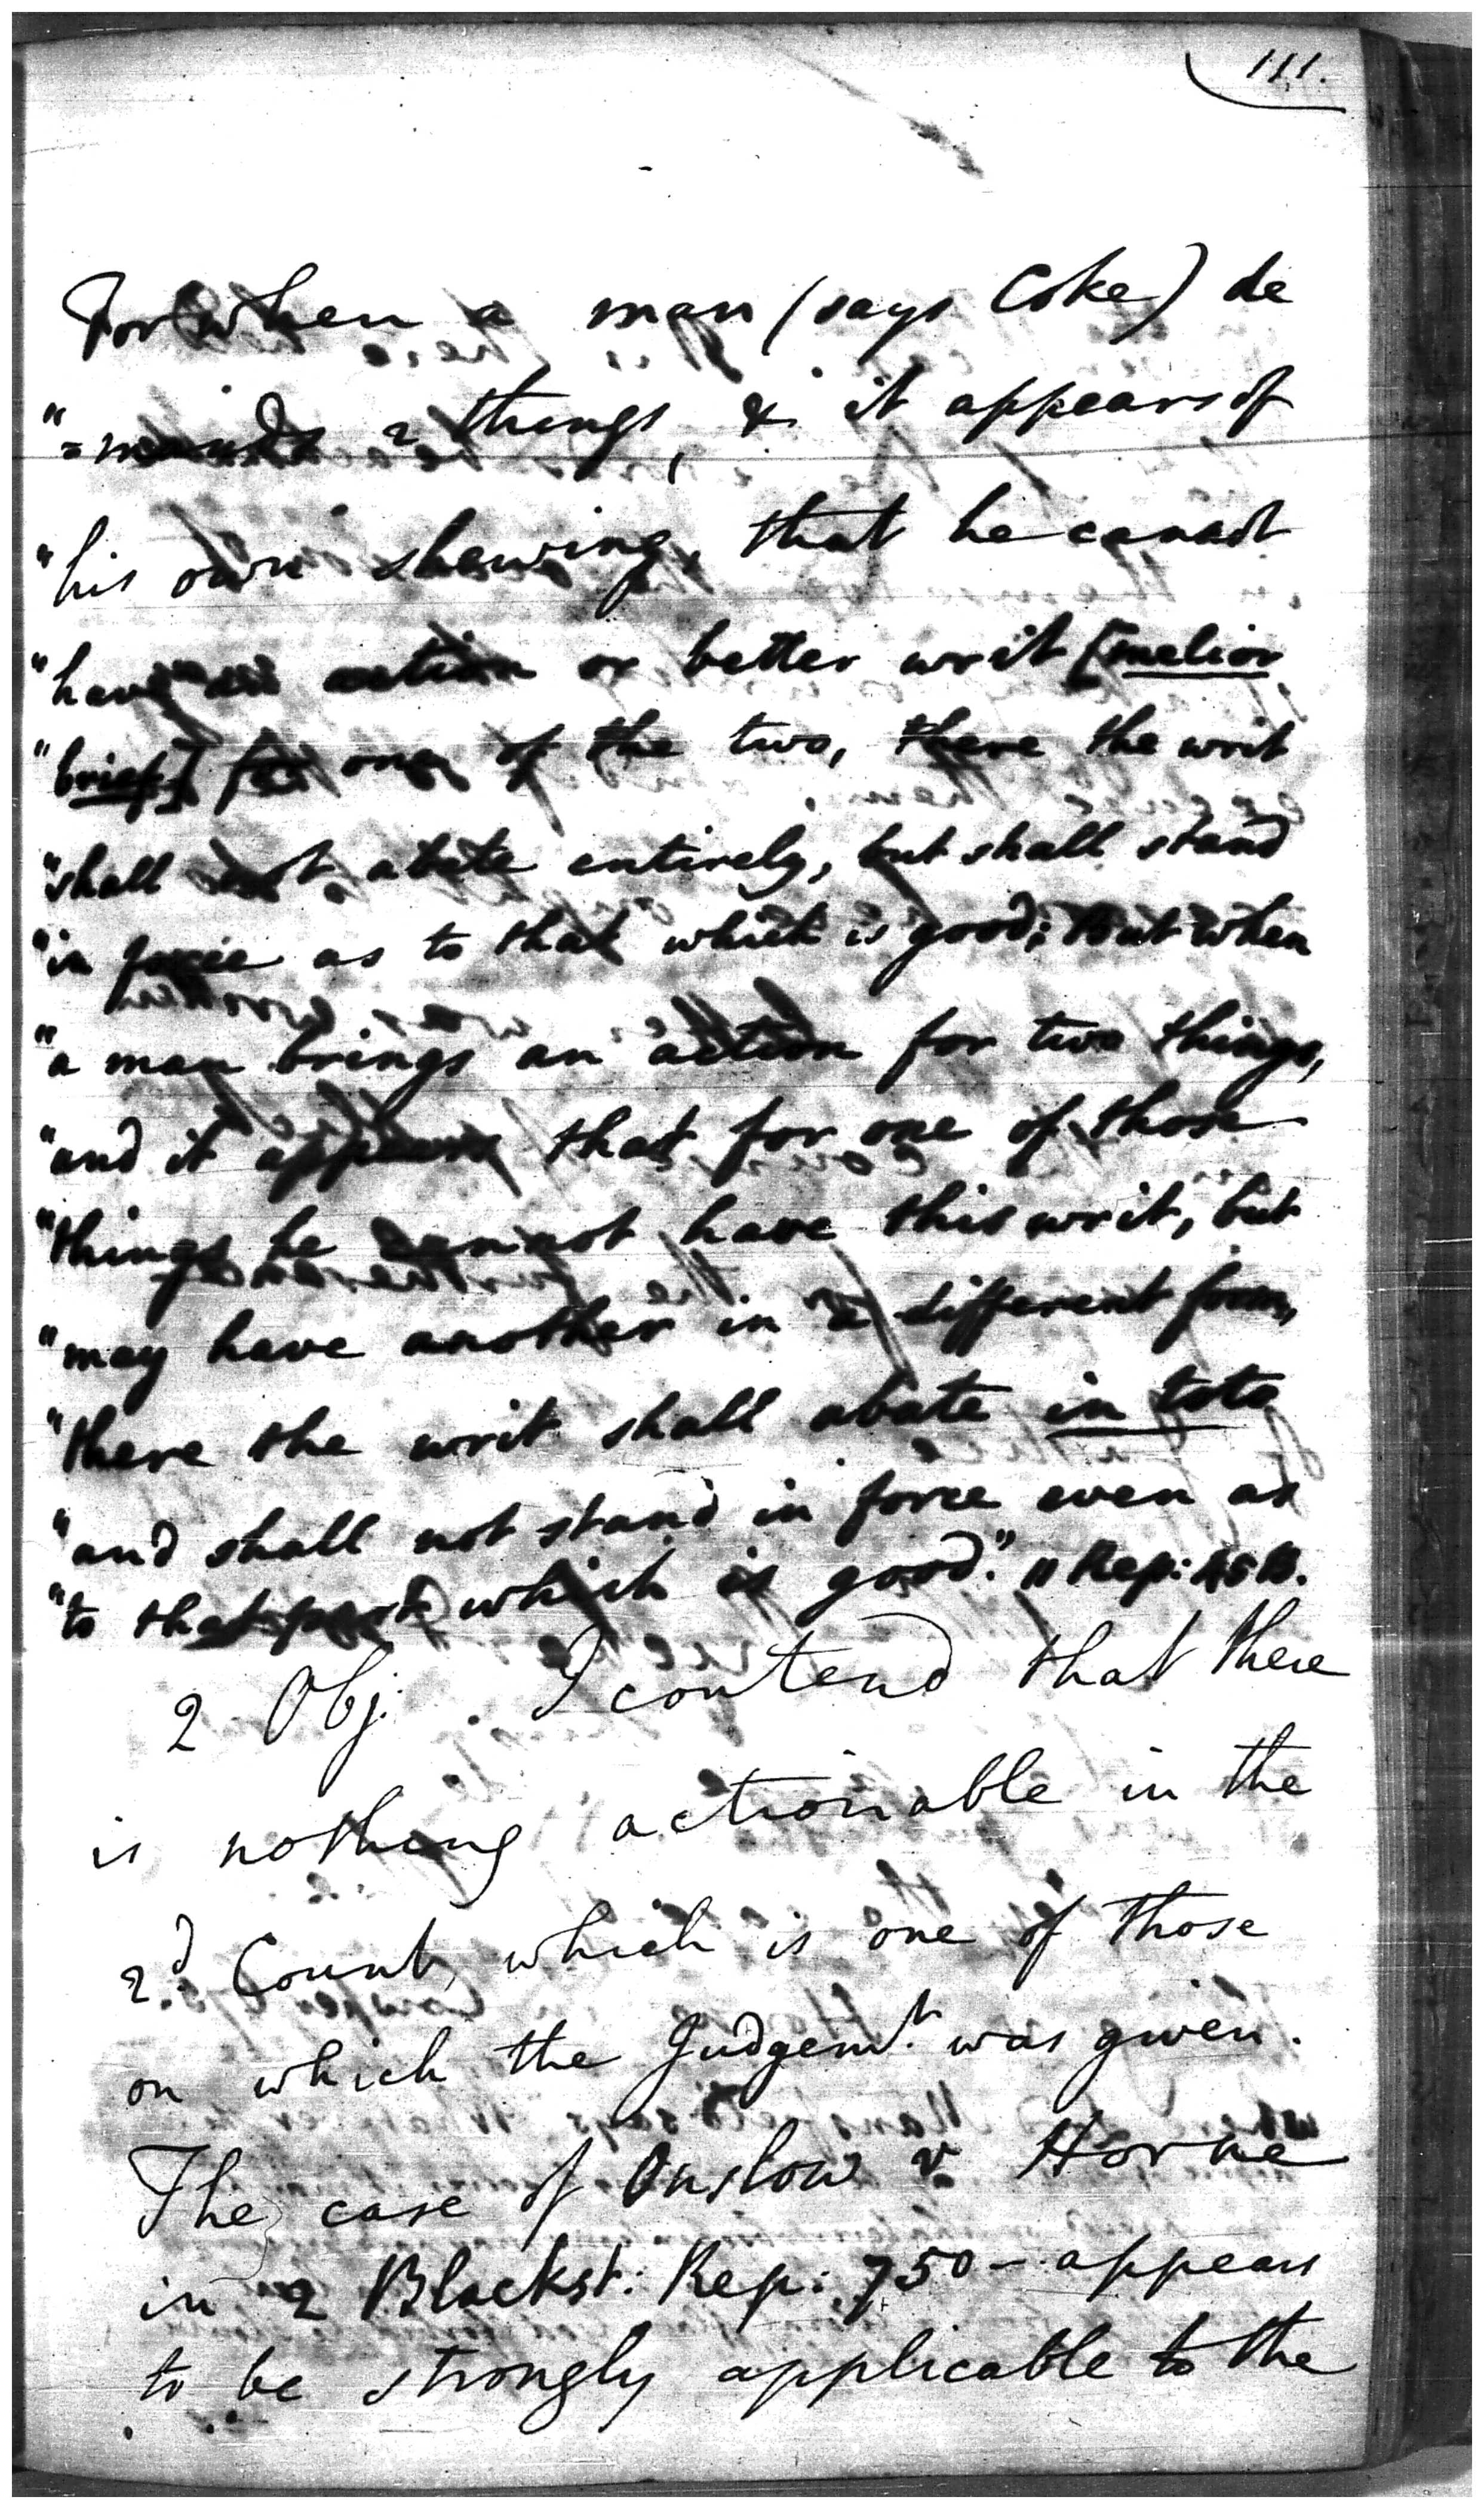 111.
For when a man (says Coke) de
"=mands 2 things, & it appears of
"his own shewing, that he canot
"have an action or better writ [melior
"brief] for one of the two, there the writ
"shall not abate entirely, but shall stand
"in force as to that which is good; But when
"a man brings an action for two things,
"and it appears that for one of those
"things he cannot have this writ, but
"may have another in a different form,
"there the writ shall abate in toto
"and shall not stand in force even as
"to that part which is good." 11 Rep: 45 B.
2 Obj: I contend that there
is nothing actionable in the
2d Count, which is one of those
on which the Judgemt. was given.
The case of Onslow v Horne
in 2 Blackst: Rep: 750 - appears
to be strongly applicable to the